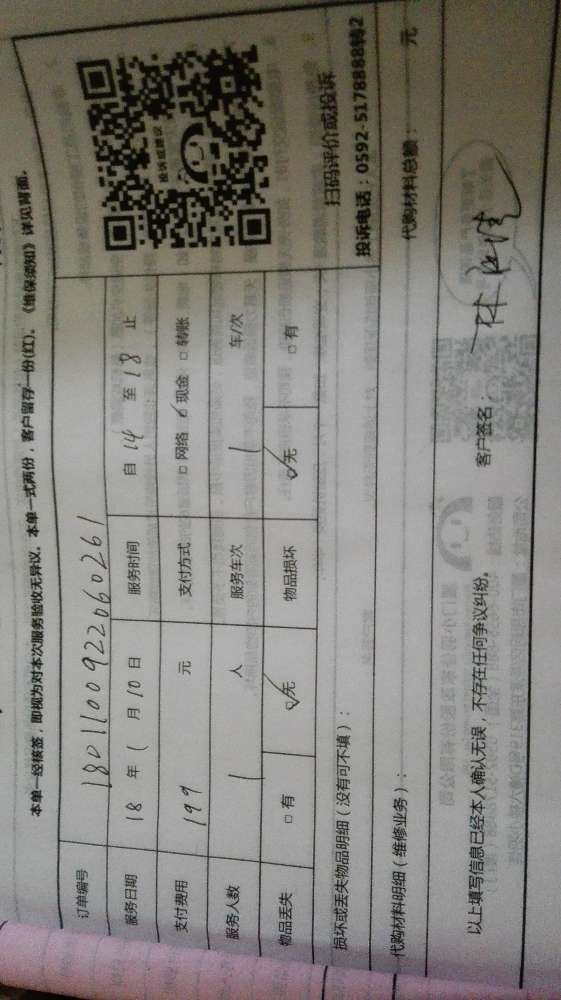 本单一经核签，即视为对本次服务验收无异议。本单一式两份，客户留存一份(红)。《维保须知》详见背面。
订单编号 1801100922060261
服务日期 18 年 1 月 10 日 服务时间 自 14 至 18 止
支付费用 199 元 支付方式 □ 网络 ☑ 现金 □ 转账
服务人数 1 人 服务车次 1 车/次
物品丢失 □ 有 ☑ 无 物品损坏 ☑ 无 □ 有
投诉或建议
扫码评价或投诉
投诉电话：0592-5178888转2
损坏或丢失物品明细（没有可不填）：
代购材料明细（维修业务）： 代购材料总额： 元
以上填写信息已经本人确认无误，不存在任何争议纠纷。 客户签名：